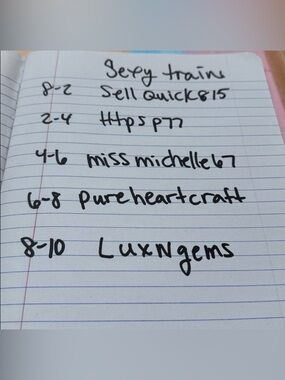 Sexy trains
8-2 SellQuick815
2-4 Httpsp77
4-6 missmichelle67
6-8 pureheartcraft
8-10 LuxNgems